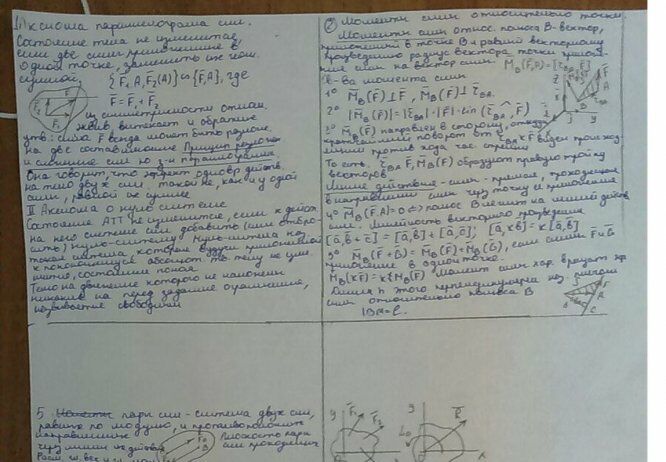 1) Аксиома параллелограма сил.
Состояние тела не изменится,
если две силы приложенные в
одной точке, заменить их геом.
суммой.
{F̄₁, A, F₂(A)} ∾ {F̄, A}, где
F̄ = F̄₁ + F̄₂
из симметричности отнош.
эквив. вытекает и обратное
утв: сила F всегда может быть разлож.
на две составляющие
и сложение сил по 3-й параллелограмма
Она говорит, что эффект одноврем действ.
на тело двух сил, такой же, как и у одной
силы, равной их сумме
II Аксиома о нуль системе
Состояние АТТ не изменится, если к действ.
на него системе сил добавить (или отбро-
сить) нуль-систему. Нуль-система наз
такая система, которая будучи приложенной
к покоящемуся абсолют. тв. телу не
состояние покоя.
Тело на движение которого не наложены
никакие на перед заданные ограничения,
называется свободным
2) Моменты силы относительно точки
Моментом силы относ. полюса B-вектор,
приложенный в точке B и равный векторному
произведению радиус вектора точки прилож-
ния силы на вектор силы. M̄_B(F̄,A) =
Св-ва момента силы
1° M̄_B(F̄) ⊥ F̄, M̄_B(F̄) ⊥ r̄_BA
2° |M̄_B(F̄)| = |r̄_BA| · |F̄| · sin(r̄_BA, F̄)
3° M̄_B(F̄) направлен в сторону, откуда
кратчайший поворот от r̄_BA к F̄ виден происход-
ящим против хода час. стрелки
То есть, r̄_BA, F̄, M̄_B(F̄) образуют правую тройку
векторов.
Линия действие - силы - прямая, проходящая
в направлении силы через точку её приложения
4° M̄_B(F̄,A)=0 ⇔ полюс B лежит на линий действ
силы. Линейность векторного произведения
[ā, b̄ + c̄] = [ā, b̄] + [ā, c̄]; [ā, kb̄] = k[ā, b̄]
5° M̄_B(F̄ + Ḡ) = M̄_B(F̄) + M̄_B(Ḡ), если силы F̄ и Ḡ
приложены в одной точке.
M̄_B(kF̄) = k{M̄_B(F̄)} Момент силы хар. вращат
Длина h этого перпендикуляра наз плечом
силы относительно полюса B
5. пары сил - система двух сил,
равных по модулю, и противоположно
направленные
Плоскость пары
сил проходящих